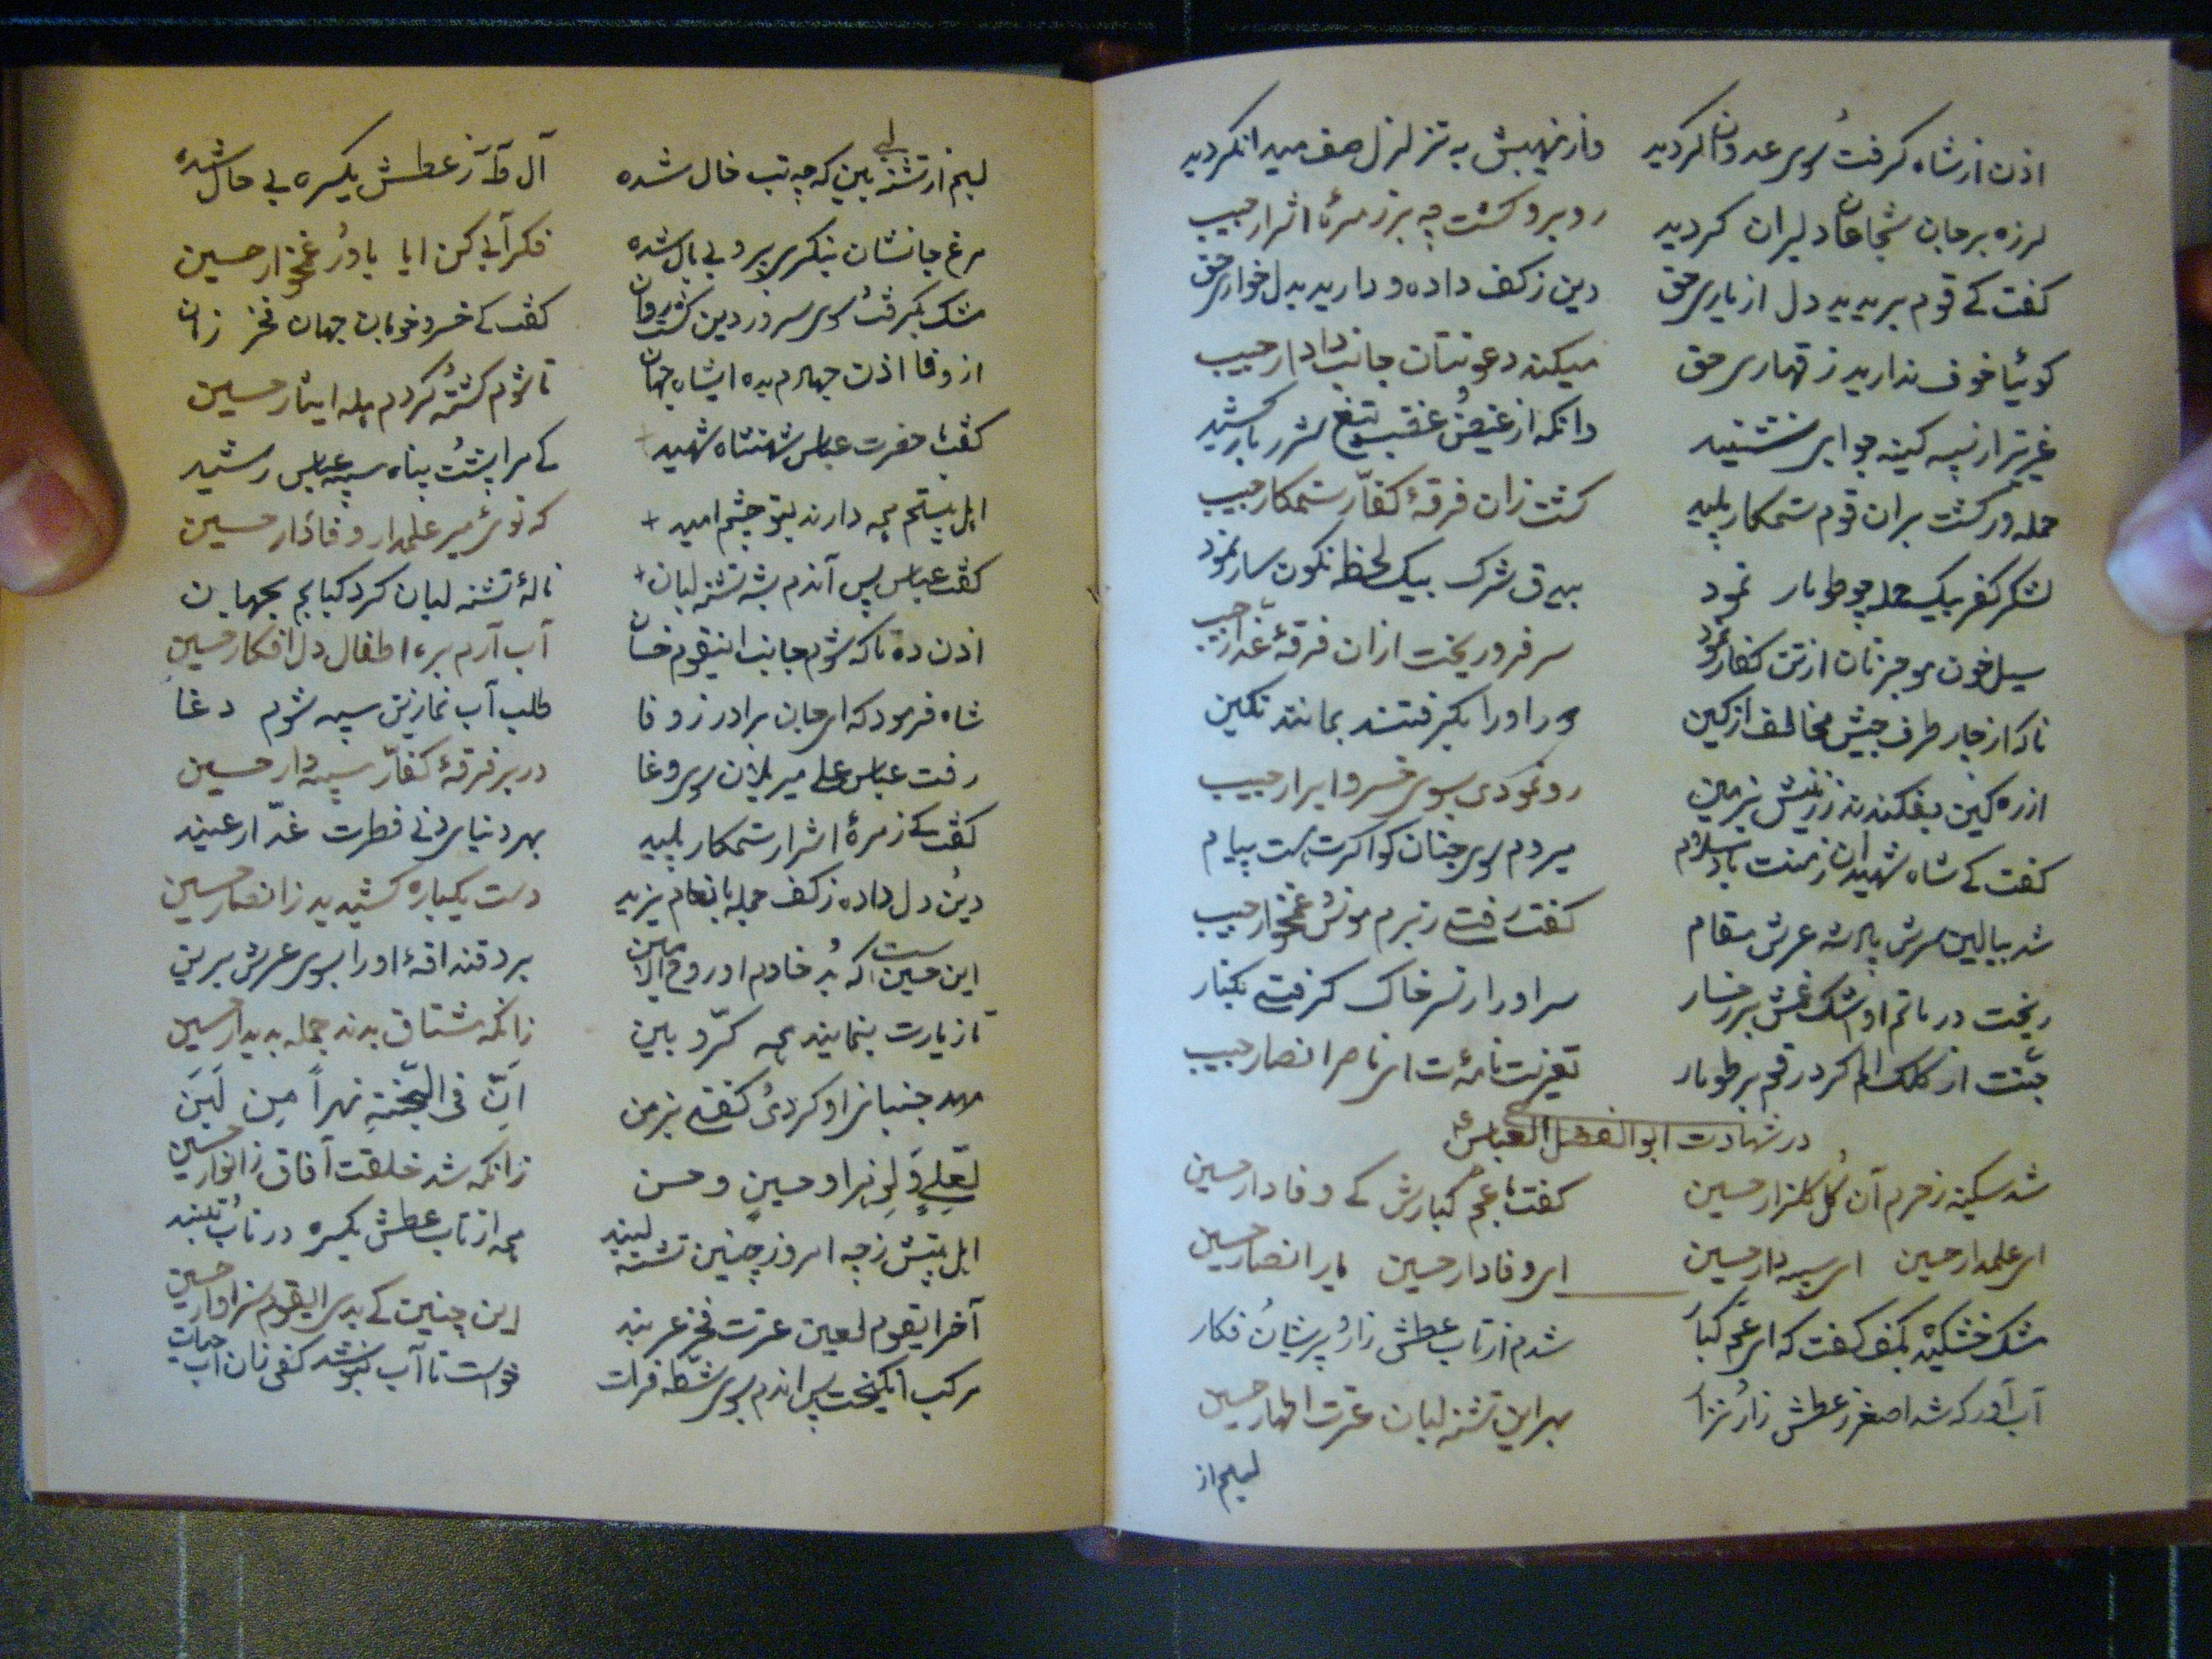 اذن از شاه گرفت و سوی عدوان گردید
واز نهیبش به تزلزل صف میدان گردید
لرزه بر جان شجاعان و دلیران گردید
روبرو گشت چه بر زمرهٔ اشرار حبیب
گفت کے قوم بریدید دل از یاری حق
دین ز کف داده و دارید بدل خواری حق
گوئیا خوف ندارید ز قهاری حق
میکند دعوتتان جانب دادار حبیب
غیر تیر از سپه کینه جوابی نشنید
دانگه از غیض و غضب تیغ شرر بار کشید
حمله ور گشت بران قوم ستمکار پلید
کشت زان فرقهٔ کفّار ستمکار حبیب
لشکر کفر بیک حمله چو طومار نمود
بیرق شرک بیک لحظه نگون سار نمود
سیل خون موج زنان از تن کفار نمود
سر فرو ریخت ازان فرقهٔ غدار حبیب
ناگه از چار طرف جیش مخالف از کین
ور اورا بگرفتند بمانند نگین
از ره کین بفکندند ز زینش بزمین
رو نمودی بسوی خسرو ابرار حبیب
گفت کے شاه شهیدان ز منت باد سلام
میروم سوی جنان گو اگرت هست پیام
شد ببالین سرش پادشه عرش مقام
گفت رفتے ز برم مونس و غمخوار حبیب
ریخت در ماتم او اشک غمش بر رخسار
سر اورا ز سر خاک گرفتے بکنار
از کلک الم کرد رقم بر طومار
تعزیت نامهٔ ت ای ناصر انصار حبیب
در شهادت ابوالفضل العباس ع
شد سکینه ز حرم آن گل گلزار حسین
گفت با عم کبارش کے وفادار حسین
ای علمدار حسین ای سپهدار حسین
ای وفادار حسین یار انصار حسین
مشک خشکیده بکف گفت که ای عم کبار
شدم از تاب عطش زار و پریشان و فکار
آب آور که شد اصغر ز عطش زار و نزار
بهر این تشنه لبان عترت اطهار حسین
لبم از
لبم از تشنه لبی بین که چه تب خال شده
آل طه ز عطش یکسره بی حال شده
مرغ جانشان بنگر بی پر و بی بال شده
فکر آبی کن ایا یاور و غمخوار حسین
مشک بگرفت و سوی سرور دین گشت روان
گفت کے خسرو خوبان جهان فخر زمان
از وفا اذن جهادم بده ایشاه جهان
تا شوم کشته و گردم بله ایثار حسین
گفت با حضرت عباس شهنشاه شهید +
کے مرا پشت و پناه سپه عباس رشید
اهل بیتم همه دارند بتو چشم امید +
که توئی میر علمدار وفادار حسین
گفت عباس پس آندم بشه تشنه لبان +
نالهٔ تشنه لبان کرد کبابم بجهان
اذن ده تا که شوم جانب اینقوم خسان
آب آرم بره اطفال دل افکار حسین
شاه فرمود که ای جان برادر ز وفا
طلب آب نما زین سپه شوم دغا
رفت عباس علی میر یلان سوی وغا
در بر فرقهٔ کفّار سپهدار حسین
گفت کے زمرهٔ اشرار ستمکار پلید
بهر دنیای دنی فطرت غدّار عنید
دین و دل داده ز کف جمله بانعام یزید
دست یکباره کشیدید ز انصار حسین
این حسین است که بُد خادم او روح الامین
برد قنداقهٔ اورا بسوی عرش برین
تا زیارت بنمایند همه کرّوبین
زانکه مشتاق بدند جمله بدیدار حسین
مهد جنبان او کردی و گفتے بزمن
اَنّ فی الجّنتهِ نهراً مِن لَبَن
لعَلیٍ وَ لزهرا و حسینٍ و حسن
زانکه شد خلقت آفاق ز انوار حسین
اهل بیتش ز چه امروز چنین تشنه لبند
همه از تاب عطش یکسره در تاب و تبند
آخر ایقوم لعین عترت فخر عربند
این چنین کے بدی ایقوم سزاوار حسین
مرکب انگیخت پس اندم بسوی شطّ فرات
خواست تا آب بنوشد کفی زان آب حیات